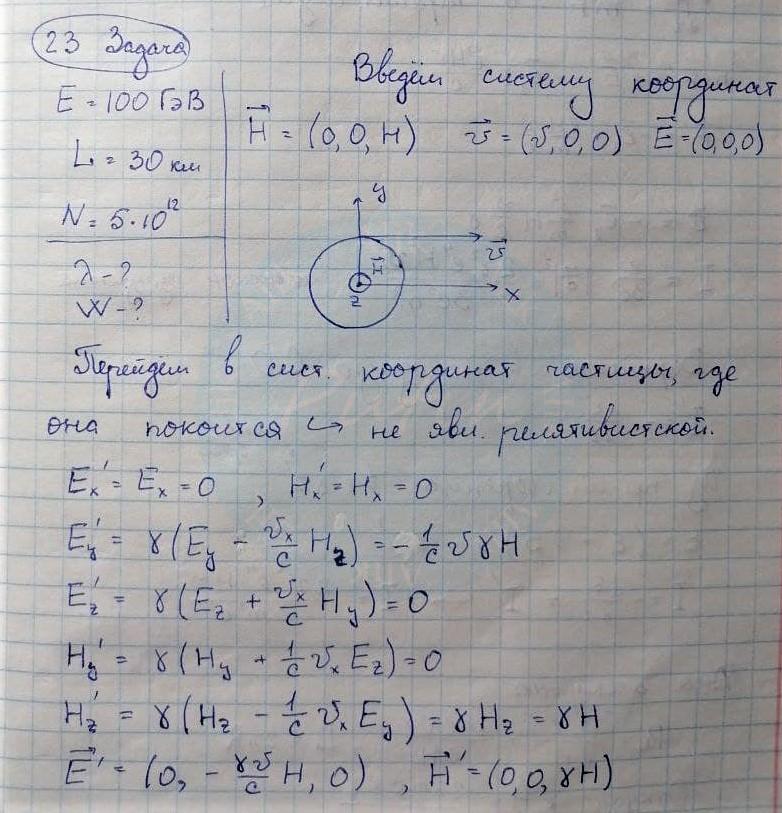 23 Задача
E = 100 ГэВ
L = 30 км
N = 5·10¹²
λ - ?
W - ?
Введём систему координат
H⃗ = (0, 0, H) v⃗ = (v, 0, 0) E⃗ = (0,0,0)
y
v⃗
H⃗
z
x
Перейдём в сист. координат частицы, где
она покоится ↪ не явл. релятивистской.
Eₓ' = Eₓ = 0 , Hₓ' = Hₓ = 0
E_y' = γ(E_y - vₓ/c H_z) = - 1/c vγH
E_z' = γ(E_z + vₓ/c H_y) = 0
H_y' = γ(H_y + 1/c vₓ E_z) = 0
H_z' = γ(H_z - 1/c vₓ E_y) = γH_z = γH
E⃗' = (0, - γv/c H, 0) , H⃗' = (0,0, γH)